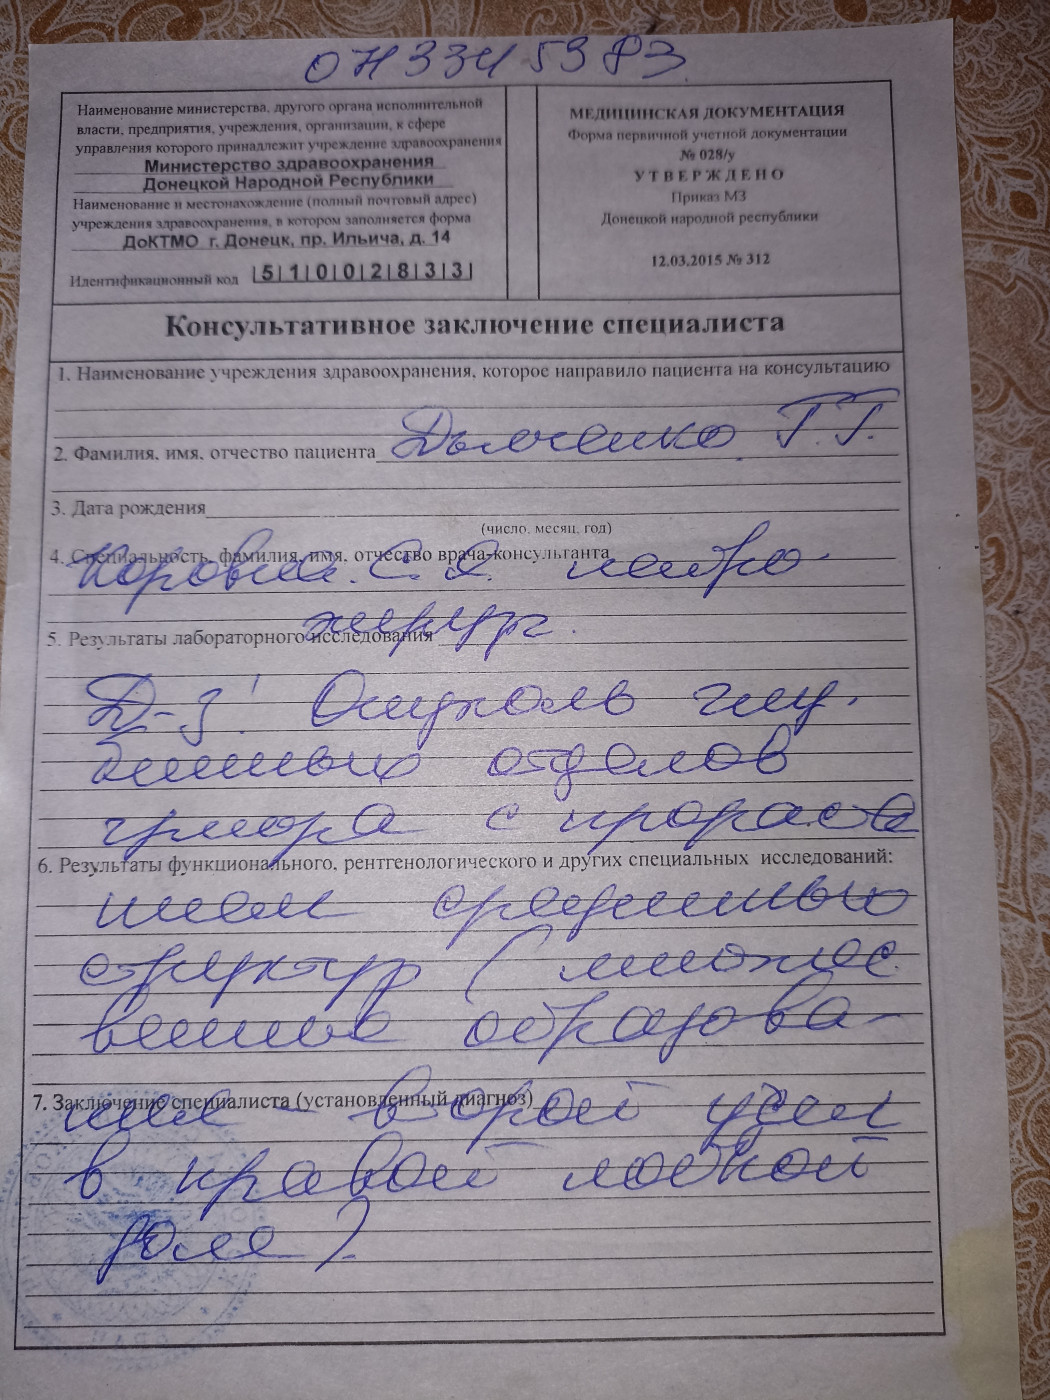 071 334 59 83
Наименование министерства, другого органа исполнительной
власти, предприятия, учреждения, организации, к сфере
управления которого принадлежит учреждение здравоохранения
Министерство здравоохранения
Донецкой Народной Республики
Наименование и местонахождение (полный почтовый адрес)
учреждения здравоохранения, в котором заполняется форма
ДоКТМО г. Донецк, пр. Ильича, д. 14
Идентификационный код |5|1|0|0|2|8|3|3|
МЕДИЦИНСКАЯ ДОКУМЕНТАЦИЯ
Форма первичной учетной документации
№ 028/у
УТВЕРЖДЕНО
Приказ МЗ
Донецкой народной республики
12.03.2015 № 312
Консультативное заключение специалиста
1. Наименование учреждения здравоохранения, которое направило пациента на консультацию
2. Фамилия, имя, отчество пациента Г.Г.
3. Дата рождения
(число, месяц, год)
4. Специальность, фамилия, имя, отчество врача-консультанта
нейро-
хирург.
5. Результаты лабораторного исследования
Д-з: Опухоль глу-
бинных отделов
с прораста
6. Результаты функционального, рентгенологического и других специальных исследований:
нием срединных
структур (множес
венные образова-
7. Заключение специалиста (установленный диагноз)
ния - второй узел
в правой лобной
доле).